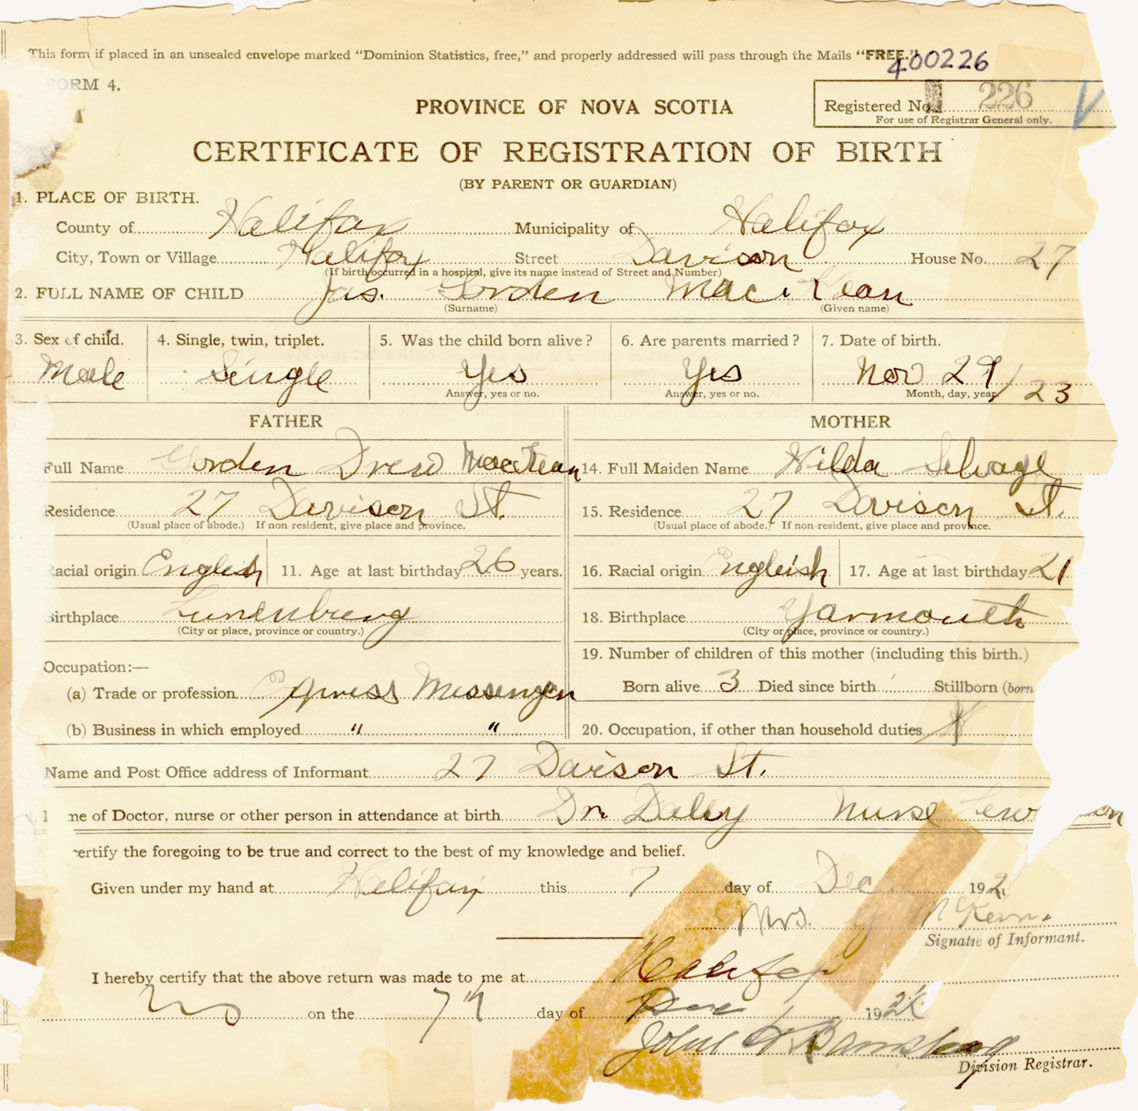 This form if placed in an unsealed envelope marked "Dominion Statistics, free," and properly addressed will pass through the Mails "FREE."
400226
FORM 4.
PROVINCE OF NOVA SCOTIA
Registered No. 226
For use of Registrar General only.
CERTIFICATE OF REGISTRATION OF BIRTH
(BY PARENT OR GUARDIAN)
1. PLACE OF BIRTH.
County of Halifax Municipality of Halifax
City, Town or Village Halifax Street Davison House No. 27
(If birth occurred in a hospital, give its name instead of Street and Number)
2. FULL NAME OF CHILD Jas. Gorden MacKean
(Surname) (Given name)
3. Sex of child. 4. Single, twin, triplet. 5. Was the child born alive? 6. Are parents married? 7. Date of birth.
Male Single Yes Yes Nov 29/23
Answer, yes or no. Answer, yes or no. Month, day, year
FATHER MOTHER
Full Name Gorden Drew MacKean 14. Full Maiden Name Hilda Selvage
Residence 27 Davison St. 15. Residence 27 Davison St.
(Usual place of abode.) If non resident, give place and province. (Usual place of abode.) If non-resident, give place and province.
Racial origin English 11. Age at last birthday 26 years. 16. Racial origin English 17. Age at last birthday 21
Birthplace Lunenburg 18. Birthplace Yarmouth
(City or place, province or country.) (City or place, province or country.)
19. Number of children of this mother (including this birth.)
Occupation:—
(a) Trade or profession Express Messenger Born alive 3 Died since birth Stillborn (born
(b) Business in which employed " " 20. Occupation, if other than household duties
Name and Post Office address of Informant 27 Davison St.
me of Doctor, nurse or other person in attendance at birth Dr. Daley Nurse
certify the foregoing to be true and correct to the best of my knowledge and belief.
Given under my hand at Halifax this 7 day of Dec 192
Mrs. G McKean.
Signatre of Informant.
I hereby certify that the above return was made to me at Halifax
on the 7th day of Dec 192
John
Division Registrar.